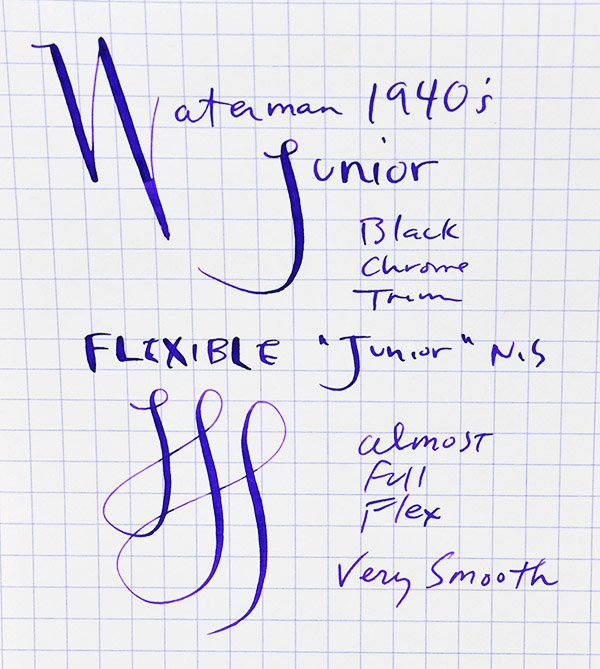 Waterman 1940's
Junior
Black
Chrome
Trim
FLEXIBLE "Junior" Nib
almost
Full
Flex
Very Smooth